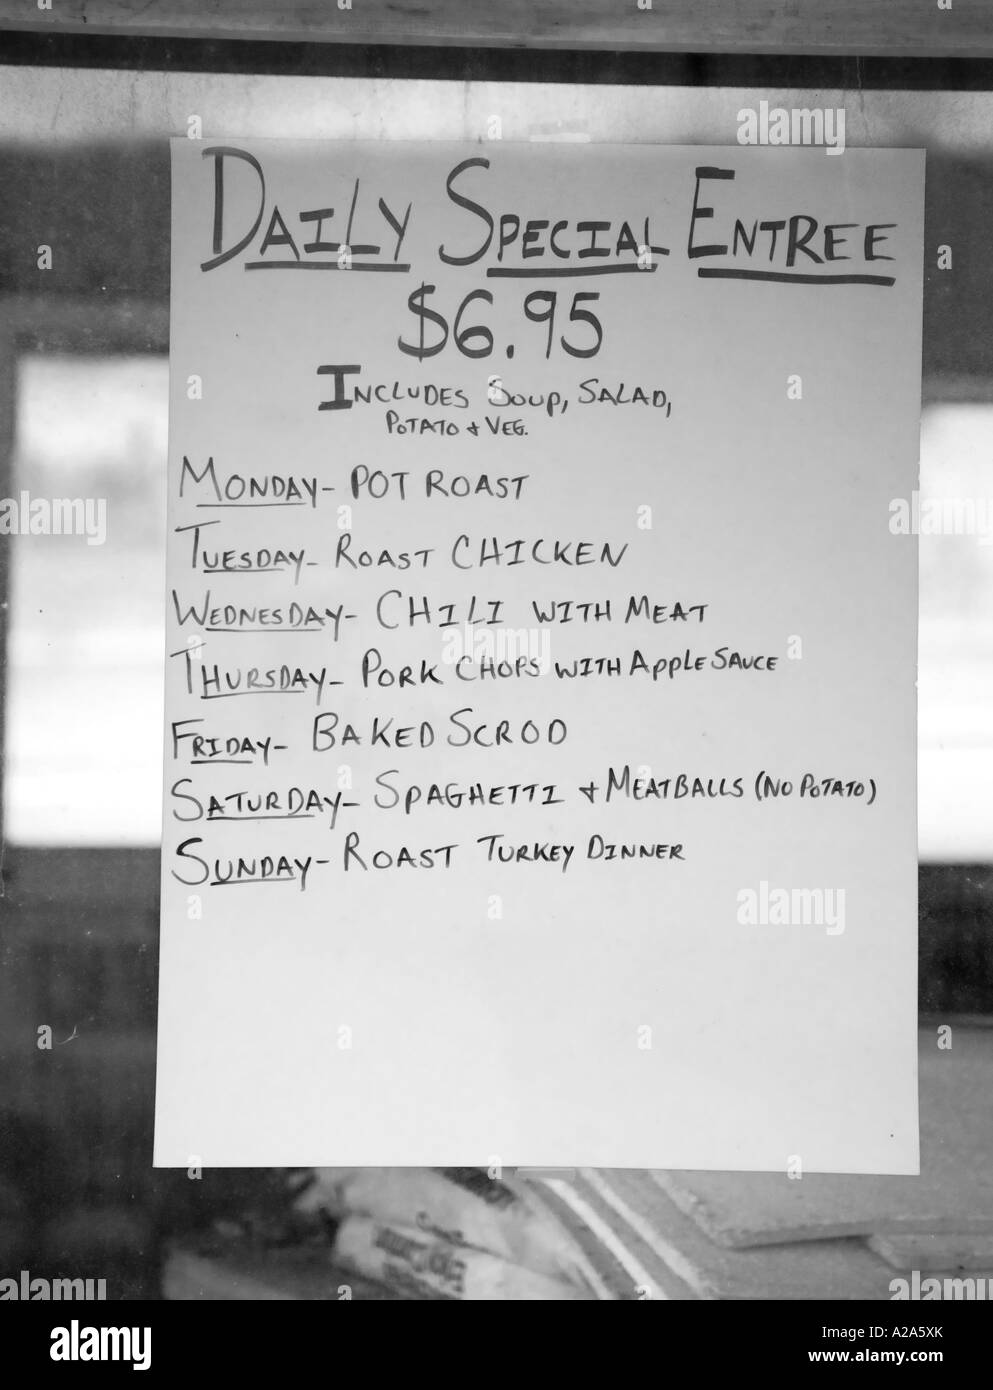 DAILY SPECIAL ENTREE
$6.95
INCLUDES SOUP, SALAD,
POTATO + VEG.
MONDAY- POT ROAST
TUESDAY- ROAST CHICKEN
WEDNESDAY- CHILI WITH MEAT
THURSDAY- PORK CHOPS WITH APPLE SAUCE
FRIDAY- BAKED SCROD
SATURDAY- SPAGHETTI + MEATBALLS (NO POTATO)
SUNDAY- ROAST TURKEY DINNER
alamy
alamy
alamy
alamy
alamy
alamy
alamy
alamy
Image ID: A2A5XK
www.alamy.com